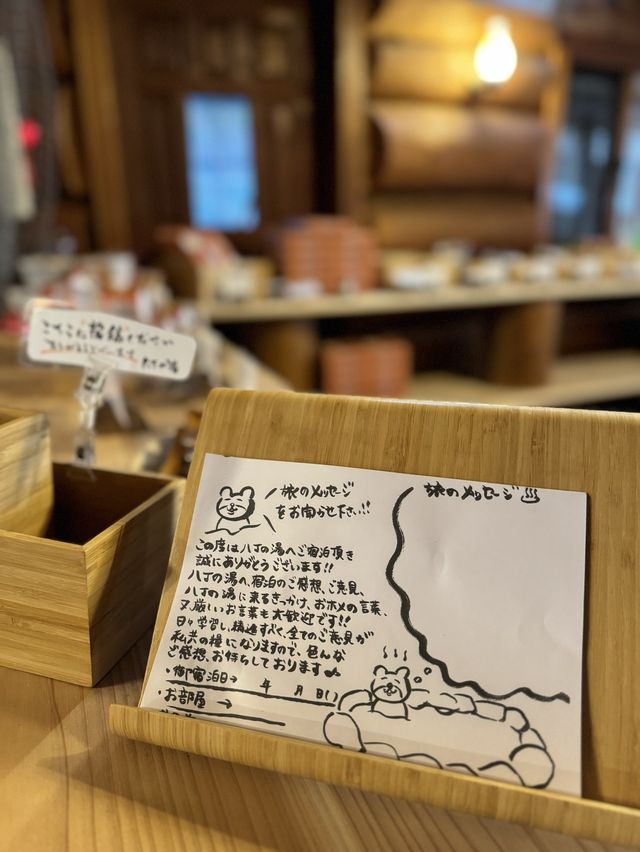 旅のメッセージ
をお聞かせ下さい!!
この度は八丁の湯へご宿泊頂き
誠にありがとうございます!!
八丁の湯へ、宿泊のご感想、ご意見、
八丁の湯に来るきっかけ、おホメの言葉、
又厳しいお言葉も大歓迎です!!
日々学習し、精進すべく、全てのご意見が
私共の糧になりますので、色んな
ご感想、お待ちしております♪
・御宿泊日→ 年 月 日( )
・お部屋 →
旅のメッセージ♨